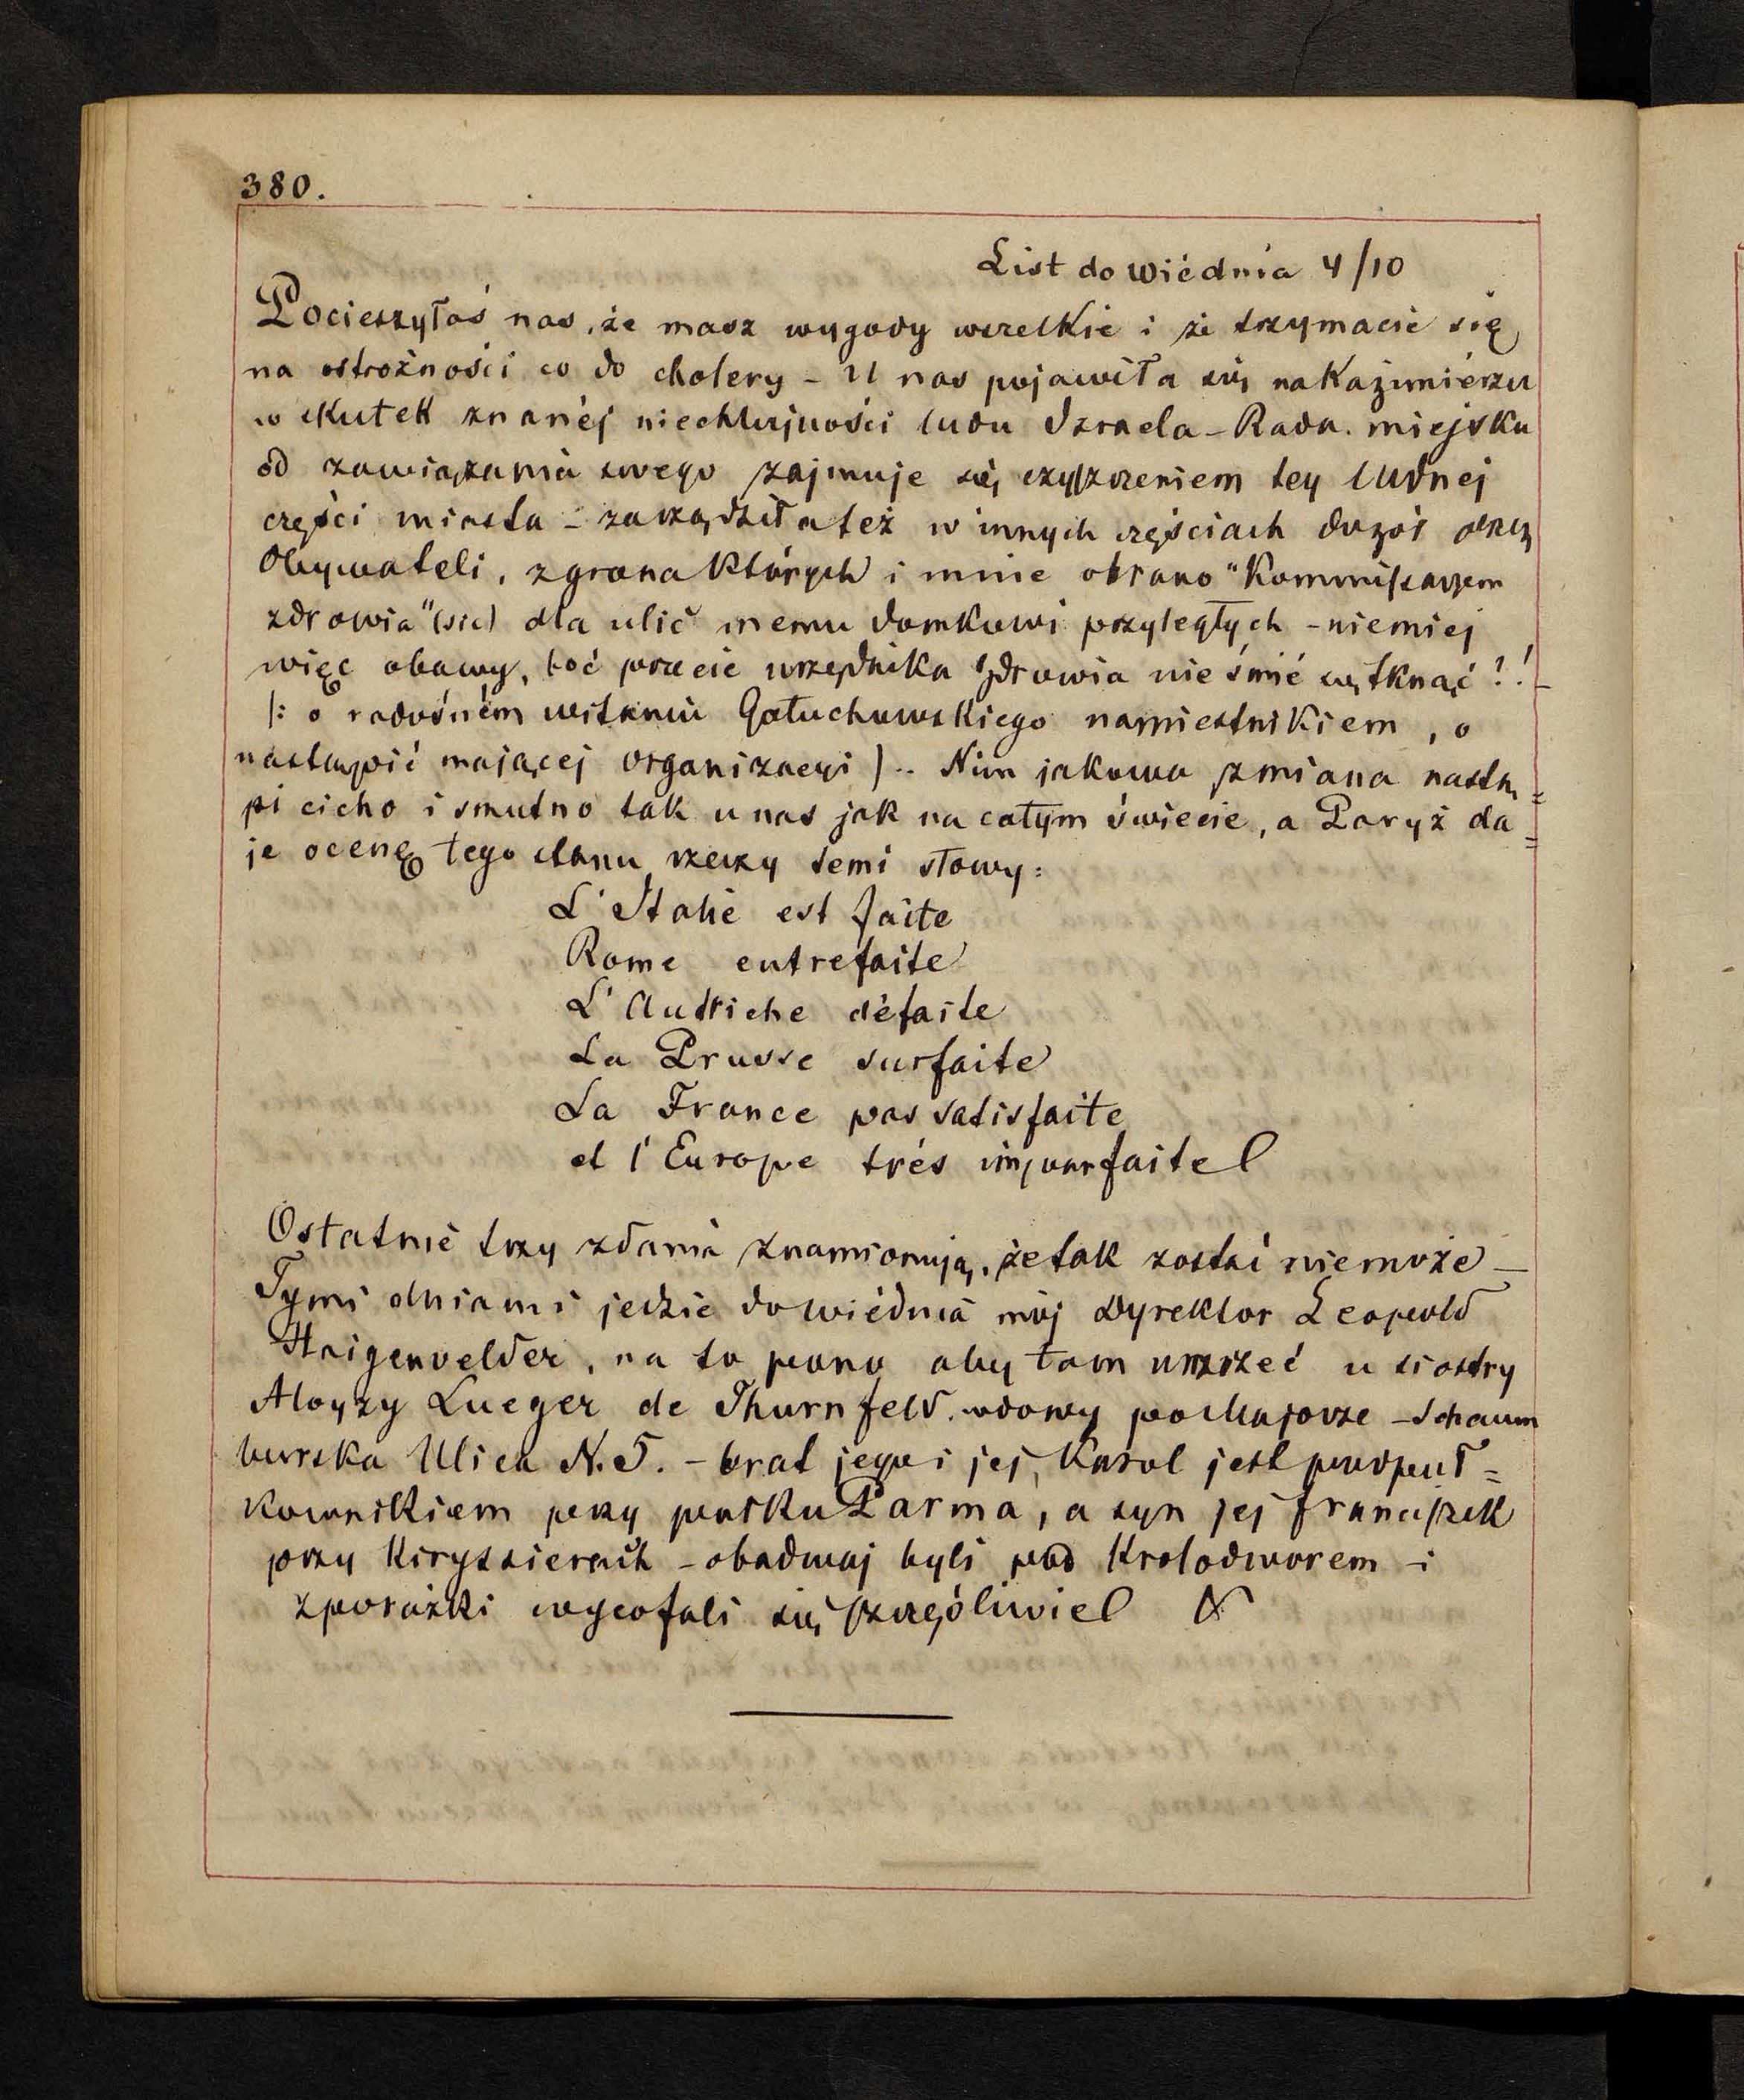 380.
List do Wiédnia 4/10
Pocieszyłaś nas, że masz wygody wszelkie i że trzymacie się
na ostrożności co do cholery - U nas pojawiła się na Kaźimiérzu
w skutek znanéj niechlujności ludu Izraela - Rada miejska
od zawiązania swego zajmuje się czyszczeniem tey ludnej
części miasta - zarządziła też w innych częściach dozór przez
Obywateli, z grona których i mnie obrano "Kommissarzem
zdrowia" (sic) dla ulic memu domkowi przyległych - niemiej
więc obawy, toć przecie urzędnika zdrowia nie śmié się tknąć?! -
/: o radośném witaniu Gołuchowskiego namiestnikiem, o
nastąpić mającej organizacyi ) .. Nim jakowa zmiana nastą=
pi cicho i smutno tak u nas jak na całym świecie, a Paryż da=
je ocenę tego stanu rzeczy temi słowy:
L'Italie est faite
Rome entrefaite
L'Autriche défaite
La Prusse surfaite
La France pas satisfaite
et l'Europe trés imparfaite!
Ostatnie trzy zdania znamionują, że tak zostać niemoże -
Tymi dniami jedzie do Wiédnia mój Dyrektor Leopold
Haigenvelder, na to pono aby tam umrzeć u siostry
Aloyzy Lueger de Thurnfeld, wdowy po Majorze - Schaum
burska Ulica N. 5. - brat jego i jej, Karol jest podpuł=
kownikiem przy pułku Parma, a syn jej Franciszek
przy Kiryssierach - obadwaj byli pod Krolodworem - i
z porażki wycofali się szczęśliwie!